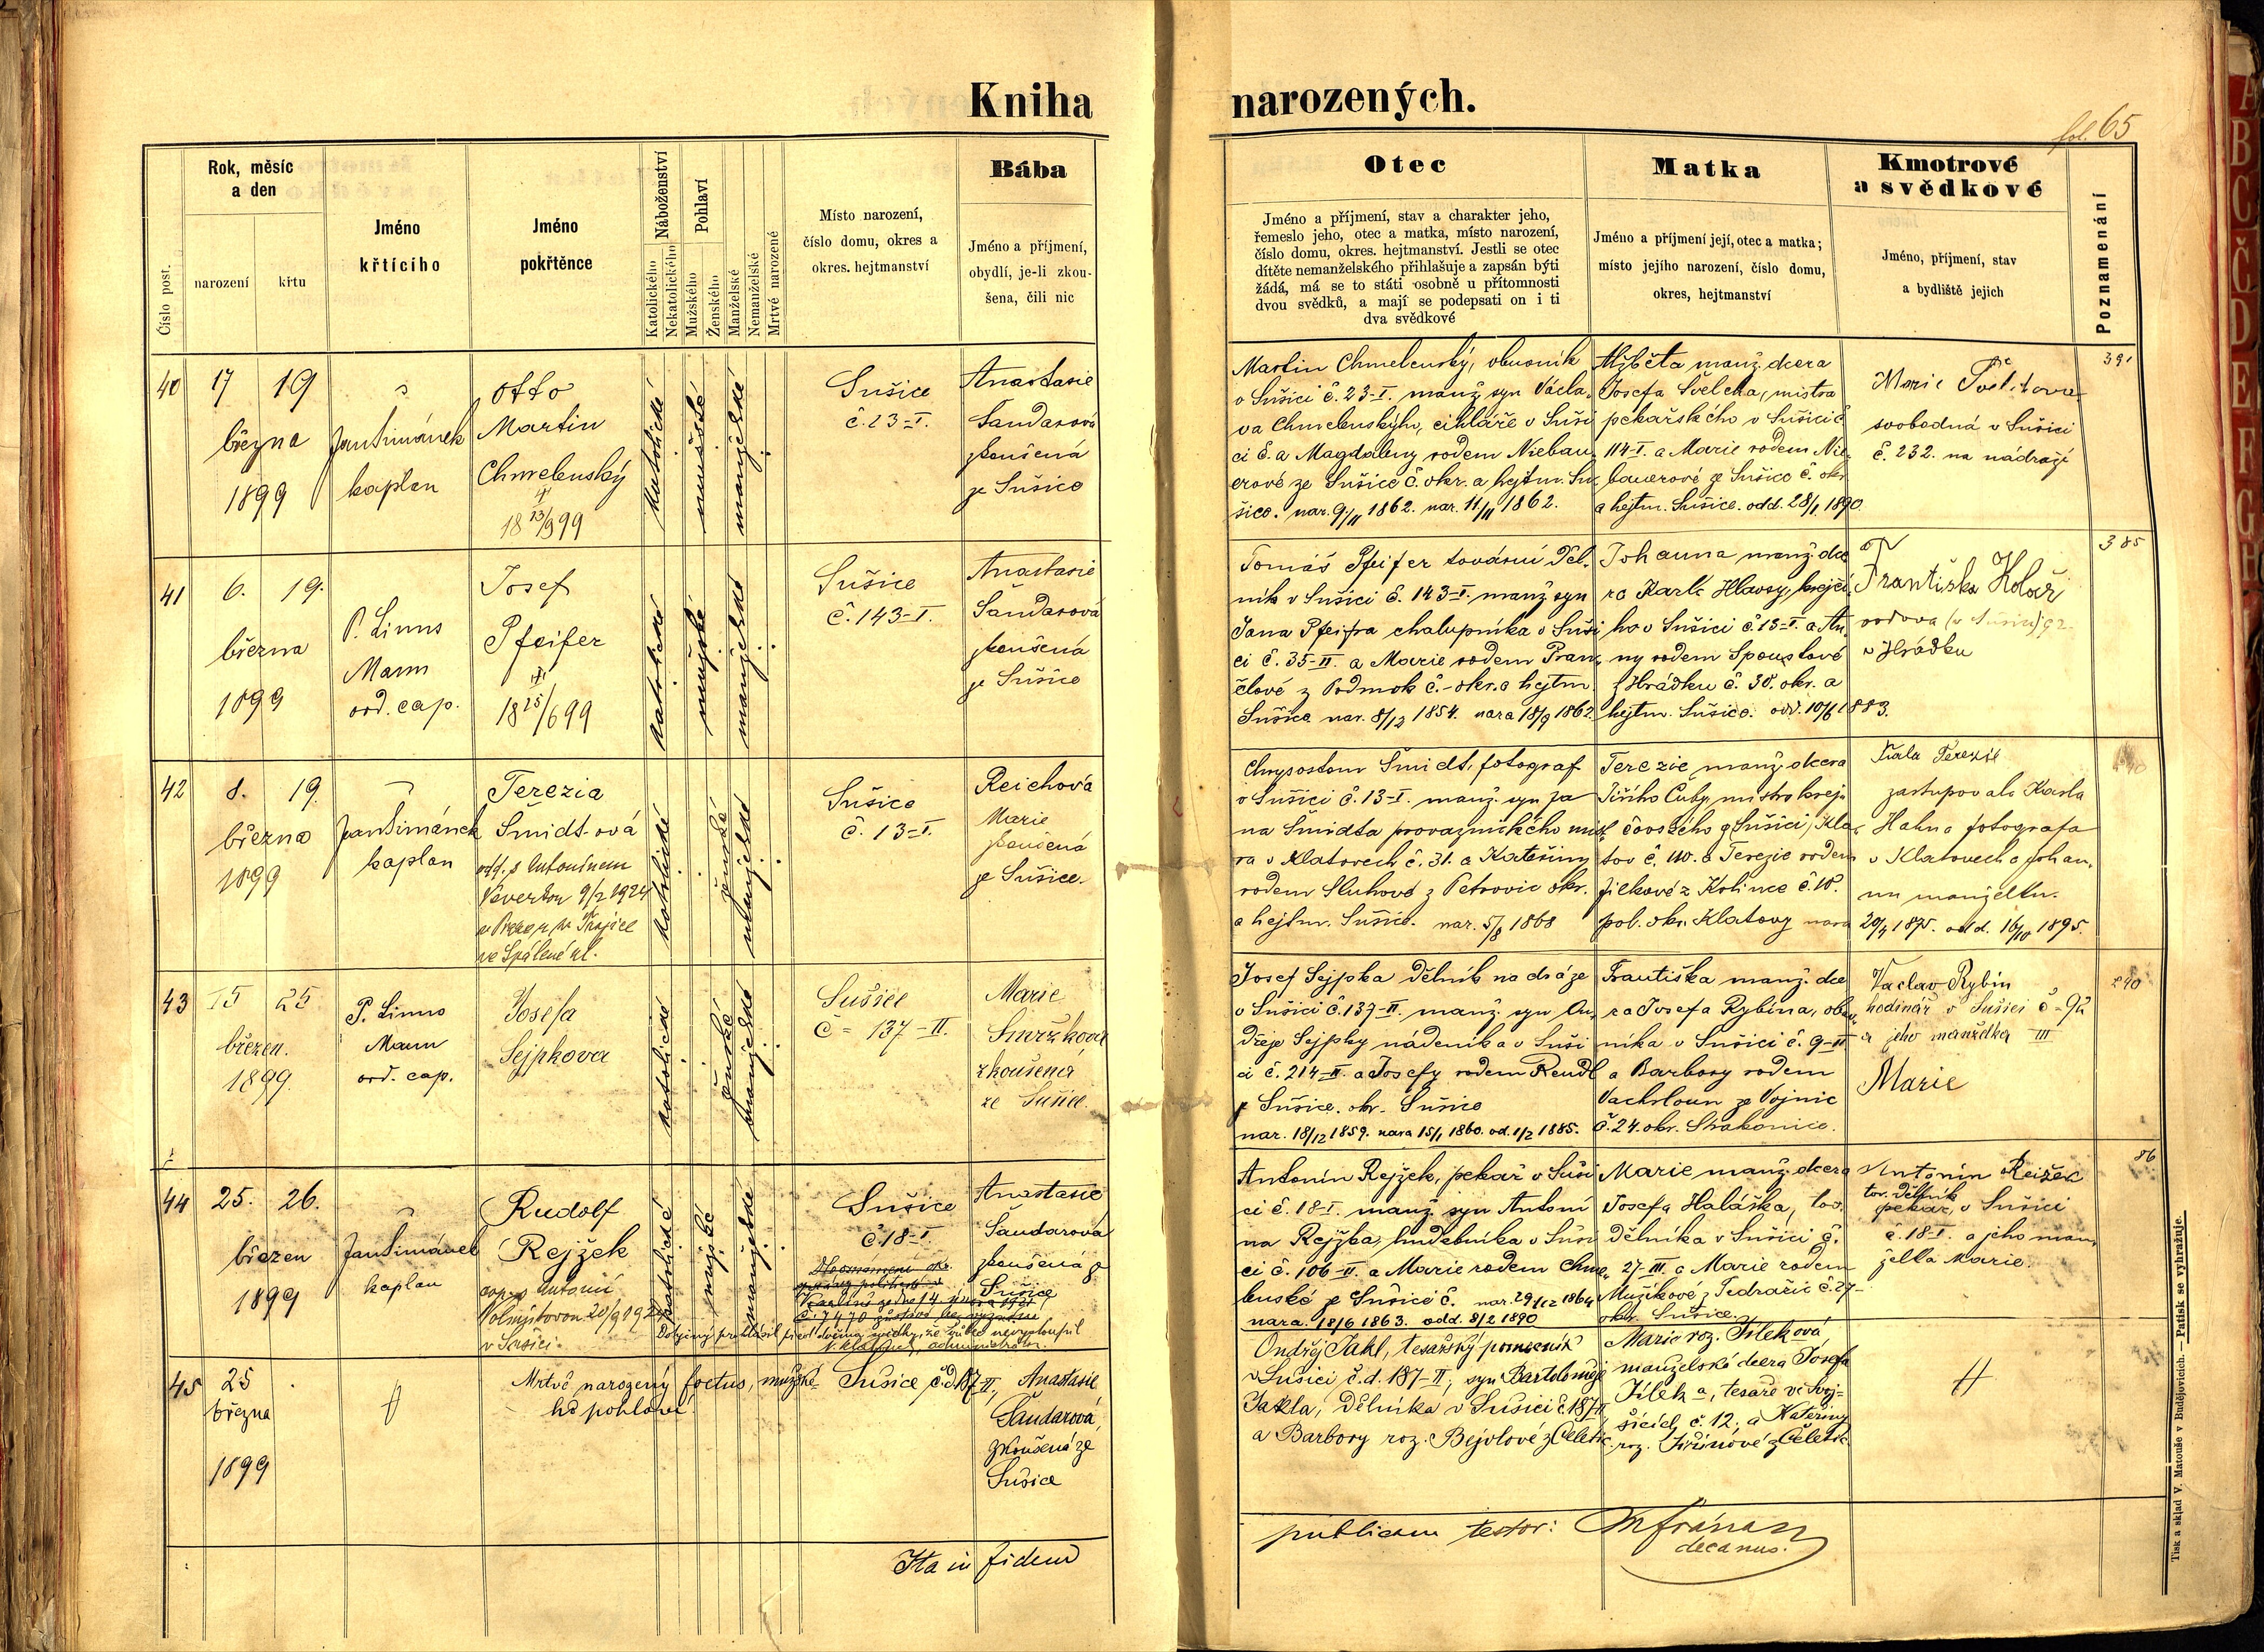 Kniha narozených.
fol. 65
Číslo post.
Rok, měsíc
a den
narození
křtu
Jméno
křtícího
Jméno
pokřtěnce
Náboženství
Katolického
Nekatolického
Pohlaví
Mužského
Ženského
Manželské
Nemanželské
Mrtvé narozené
Místo narození,
číslo domu, okres a
okres. hejtmanství
Bába
Jméno a příjmení,
obydlí, je-li zkou-
šena, čili nic
Otec
Jméno a příjmení, stav a charakter jeho,
řemeslo jeho, otec a matka, místo narození,
číslo domu, okres. hejtmanství. Jestli se otec
dítěte nemanželského přihlašuje a zapsán býti
žádá, má se to státi osobně u přítomnosti
dvou svědků, a mají se podepsati on i ti
dva svědkové
Matka
Jméno a příjmení její, otec a matka;
místo jejího narození, číslo domu,
okres, hejtmanství
Kmotrové
a svědkové
Jméno, příjmení, stav
a bydliště jejich
Poznamenání
40
17 19
března
1899
Jan Šimánek
kaplan
Otto
Martin
Chmelenský
katolické
mužské
manželské
Sušice
č. 23-I.
Anastasie
Šandarová
zkoušená
ze Sušice
Martin Chmelenský, obuvník
v Sušici č. 23-I. manž. syn Václa-
va Chmelenskýho, cihláře v Suši
ci č. a Magdaleny rodem Niebau-
erové ze Sušice č. okr. a hejtm. Su-
šice. nar. 9/11 1862. nar. 11/11 1862.
Alžběta manž. dcera
Josefa Švelcha, mistra
pekařského v Sušici č
114-I. a Marie rodem Nie-
bauerové ze Sušice č. okr.
a hejtm. Sušice. odd. 28/1 1890
Marie
svobodná v Sušici
č. 232. na nádraží
391
41
6. 19.
března
1899
P. Linus
Mann
ord. cap.
Josef
Pfeifer
18 25/6 99
katolické
mužské
manželské
Sušice
č. 143-I.
Anastasie
Šandarová
zkoušená
ze Sušice
Tomáš Pfeifer tovární děl-
ník v Sušici č. 143-I. manž syn
Jana Pfeifra chalupníka v Suši
ci č. 35-II. a Marie rodem Pran-
člové z Podmok č.- okr. a hejtm.
Sušice nar. 8/12 1854. nara 18/9 1862.
Johanna manž. dce
ra Karla Hlavsy, krejčí
ho v Sušici č 13-I. a An-
ny rodem Spoustové
z Hrádku č. 38. okr. a
hejtm. Sušice. odd. 10/6 1883.
Františka Kolář
ova
v Hrádku
385
42
8. 19.
března
1899
Jan Šimánek
kaplan
Terezia
Šmidt-ová
odd. s Antonínem
9/2 1924
v Praze u sv. Trojice
ve Spálené ul.
katolické
ženské
manželské
Sušice
č. 13-I.
Reichová
Marie
zkoušená
ze Sušice.
Chrysostom Šmidt, fotograf
v Sušici č. 13-I. manž. syn Ja
na Šmidta provaznického mist
ra v Klatovech č. 31. a Kateřiny
rodem Sluhové z Petrovic okr.
a hejtm. Sušice. nar. 5/8 1868
Terezie manž. dcera
Jiřího Čuby mistra krej
čovského z Sušici, Kla-
tov č. 110. a Terezie rodem
Jílkové z Kolince č. 18.
pol. okr. Klatovy nara 20/4 1875. odd. 16/10 1895.
Fiala Terezie
zastupovala Karla
Hahna fotografa
v Klatovech a Johan-
nu manželku.
43
15 25
březen.
1899.
P. Linus
Mann
ord. cap.
Josefa
Sejpkova
katolické
ženské
manželské
Sušice
č = 137-II.
Marie
Smržková
zkoušená
ze Sušice.
Josef Sejpka dělník na dráze
v Sušici č. 137-II. manž. syn On-
dřeje Sejpky nádeníka v Suši
ci č. 214-II. a Josefy rodem Rendl
z Sušice. okr. Sušice
nar. 18/12 1859. nara 15/1 1860. od. 1/2 1885.
Františka manž. dce
ra Josefa Rybína, obuv-
níka v Sušici č. 9-II
a Barbory rodem
Vachsloun ze Vojnic
č. 24. okr. Strakonice.
Vaclav Rybín
hodinář v Sušici č = 92
a jeho manželka III
Marie
290
44
25. 26.
březen
1899
Jan Šimánek
kaplan
Rudolf
Rejžek
v Sušici.
katolické
mužské
manželské
Sušice
č. 18-I.
Anastasie
Šandarová
zkoušená z
Sušice
Antonín Rejžek, pekař v Suši
ci č. 18-I. manž. syn Antoní
na Rejžka, hudebníka v Suši
ci č. 106-II. a Marie rodem Chme-
lenské z Sušice č. nar. 29/12 1864
nara. 18/6 1863. odd. 8/2 1890
Marie manž. dcera
Josefa Haláška, tov.
dělníka v Sušici č.
27-III. a Marie rodem
Mužíkové z Tedražic č. 27-
okr. Sušice.
Antonín Reižek
tov. dělník
pekař, v Sušici
č. 18-I. a jeho man-
želka Marie.
86
45
25
března
1899
Mrtvě narozený foetus, mužské-
ho pohlaví.
Sušice, č.d. 187-II,
Anastasie
Šandarová,
zkoušená ze
Sušice
Ondřej Jakl, tesařský pomocník
v Sušici č.d. 187-II, syn Bartoloměje
Jakla, dělníka v Sušici č. 187-II
a Barbory roz. Bejvlové z Čeletic.
Marie roz. Jílková,
manželská dcera Josefa
Jílka, tesaře ve Svoj-
šicích č. 12, a Kateřiny
roz. Jiřinové z Čeletic
Ita in fidem
publicam testor:
decanus.
Tisk a sklad V. Matouše v Budějovicích. — Patisk se vyhražuje.